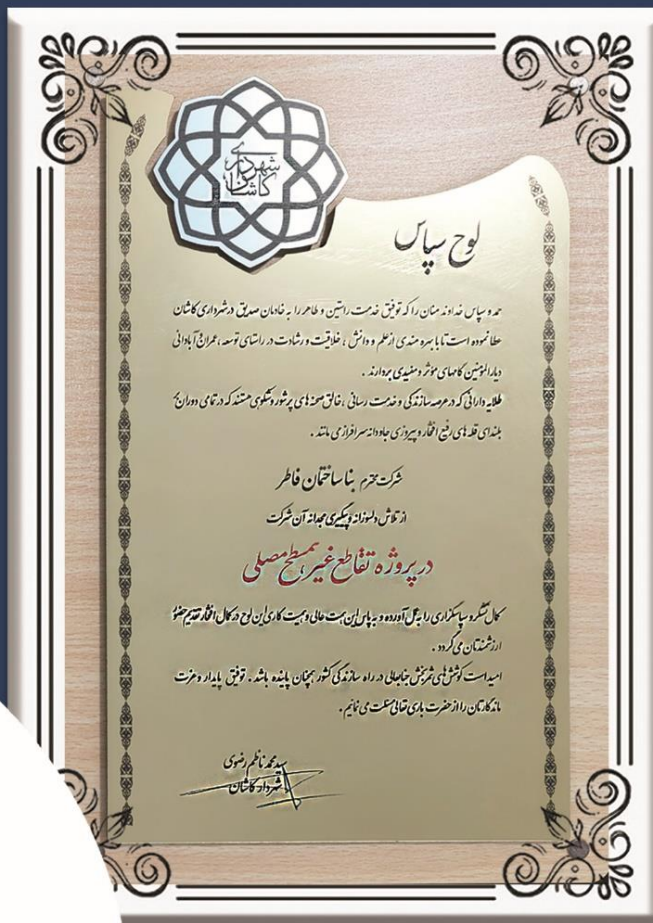 شهرداری
کاشان
لوح سپاس
حمد و سپاس خداوند منان را که توفیق خدمت راستین و طاهر را به خادمان صدیق در شهرداری کاشان
عطا نموده است تا با بهره مندی از علم و دانش ، خلاقیت و رشادت در راستای توسعه ، عمران و آبادانی
دیار المؤمنین گامهای مؤثر و مفیدی بردارند .
طلایه دارانی که در عرصه سازندگی و خدمت رسانی ، خالق صحنه های پرشور و شکوهی هستند که در تمامی دوران بر
بلندای قله های رفیع افتخار و پیروزی جاودانه سرافراز می مانند .
شرکت محترم بنا ساختمان فاطر
از تلاش دلسوزانه و پیگیری مجدانه آن شرکت
در پروژه تقاطع غیر همسطح مصلی
کمال تشکر و سپاسگزاری را به عمل آورده و به پاس این همت عالی و جدیت کاری این لوح در کمال افتخار تقدیم حضور
ارزشمندتان می گردد .
امید است کوشش های ثمربخش جنابعالی در راه سازندگی کشور همچنان پاینده باشد . توفیق پایدار و عزت
ماندگارتان را از حضرت باری تعالی مسئلت می نمائیم .
سید محمد ناظم رضوی
شهردار کاشان